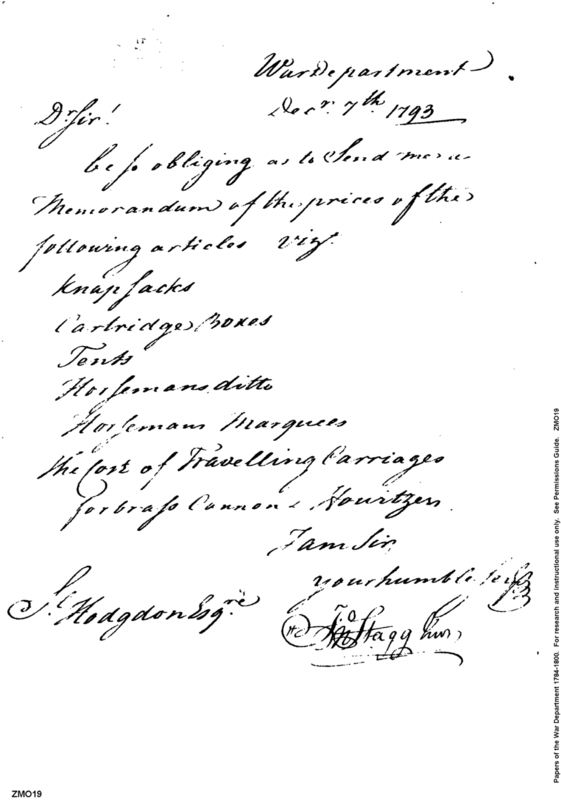 War Department
Decr. 7th. 1793
Dr Sir!
be so obliging as to Send me a
Memorandum of the prices of the
following articles viz.
Knapsacks
Cartridge Boxes
Tents
Horsemans ditto
Horsemans Marquees
the Cost of Travelling Carriages
for brass Cannon & Howitzers
I am Sir
your humble Servt
Sl Hodgdon Esqre
Jno Stagg Junr
Papers of the War Department 1784-1800. For research and instructional use only. See Permissions Guide. ZMO19
ZMO19